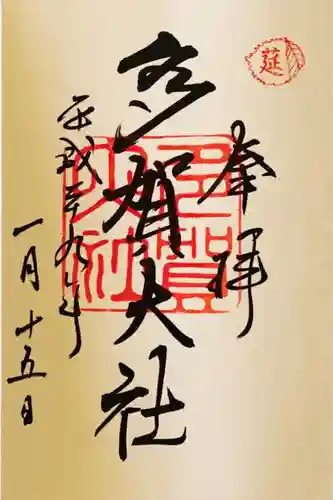 延
奉拝
多賀大社
多賀大社
平成二十九年
一月十五日